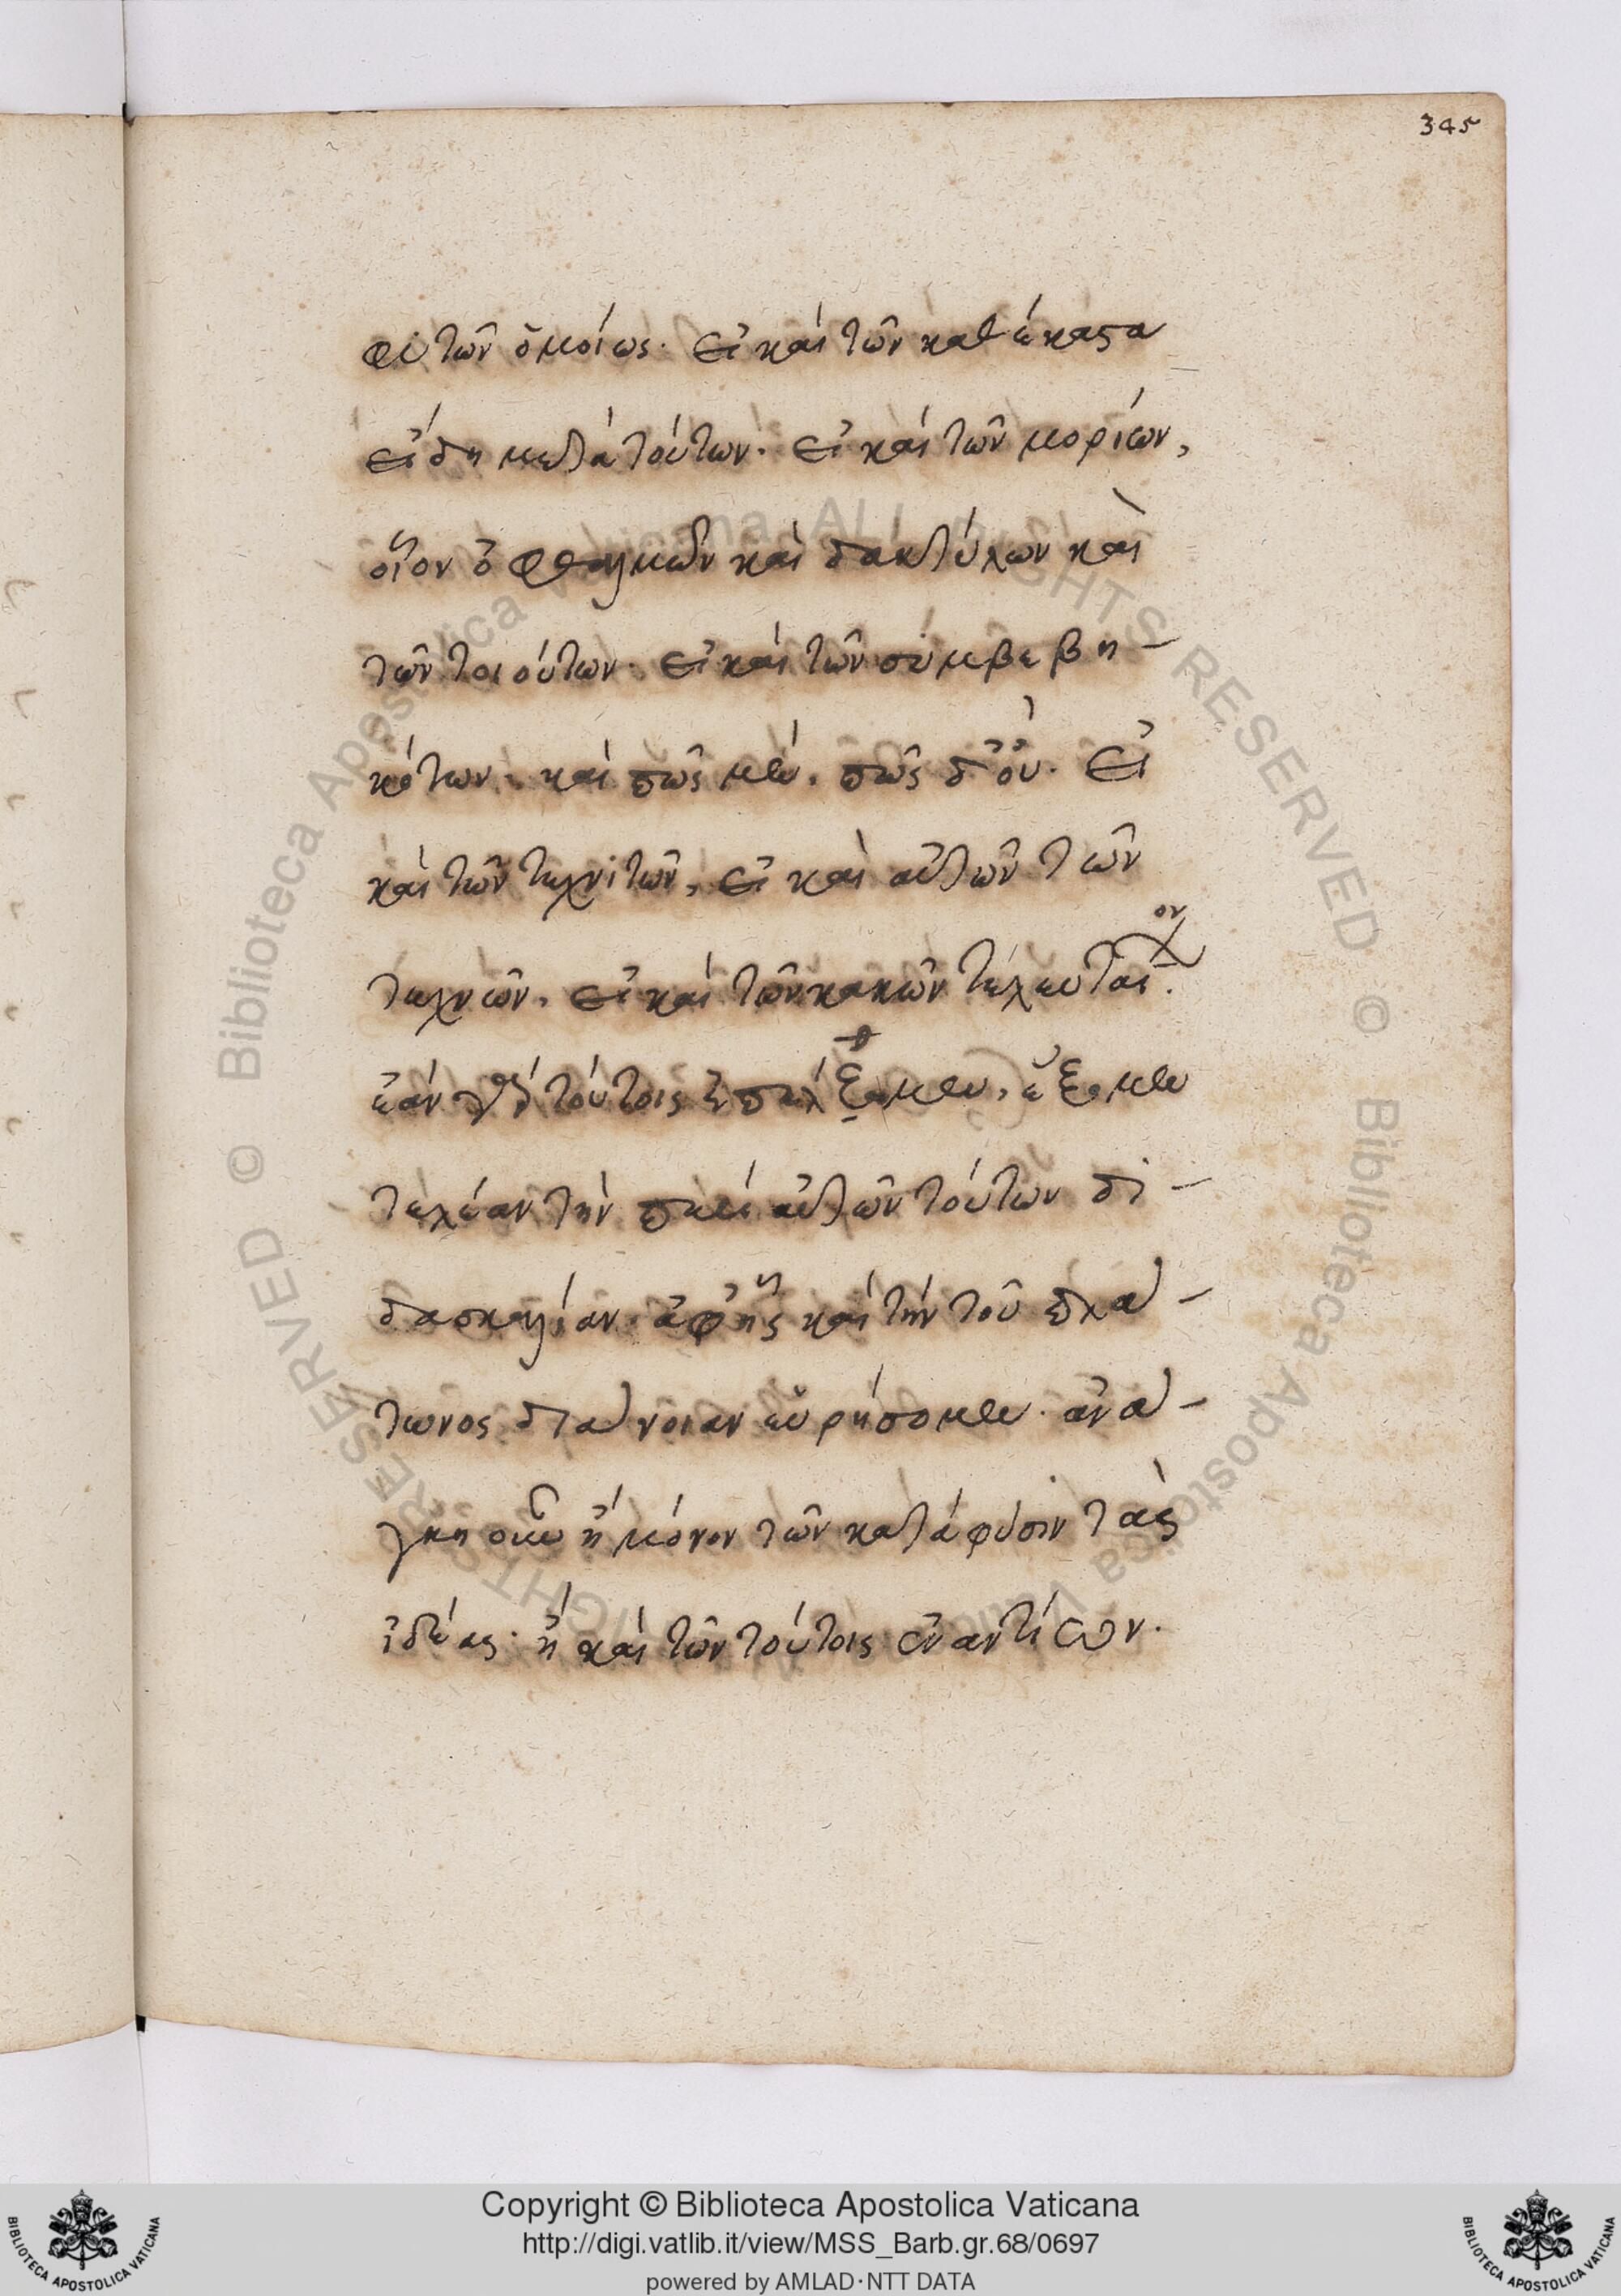 345
φυτῶν ὁμοίως· εἰ καὶ τῶν καθέκαστα
εἴδη μετὰ τούτων· εἰ καὶ τῶν μορίων,
οἷον ὀφθαλμῶν καὶ δακτύλων καὶ
τῶν τοιούτων· εἰ καὶ τῶν συμβεβη-
κότων· καὶ πῶς μέν, πῶς δ' οὔ· εἰ
καὶ τῶν τεχνιτῶν, εἰ καὶ αὐτῶν τῶν
τεχνῶν, εἰ καὶ τῶν κακῶν τελευταῖον.
ἐὰν γὰρ τούτοις ἐπεξέλθωμεν, ἕξομεν
τελέαν τὴν περὶ αὐτῶν τούτων δι-
δασκαλίαν· ἀφ' ἧς καὶ τὴν τοῦ Πλά-
τωνος διάνοιαν εὑρήσομεν· ἀνά-
γκη οὖν ἢ μόνον τῶν κατὰ φύσιν τὰς
ἰδέας· ἢ καὶ τῶν τούτοις ἐναντίων.
© Biblioteca Apostolica Vaticana ALL RIGHTS RESERVED © Biblioteca Apostolica Vaticana ALL RIGHTS RESERVED
Copyright © Biblioteca Apostolica Vaticana
http://digi.vatlib.it/view/MSS_Barb.gr.68/0697
powered by AMLAD·NTT DATA
BIBLIOTECA APOSTOLICA VATICANA
BIBLIOTECA APOSTOLICA VATICANA